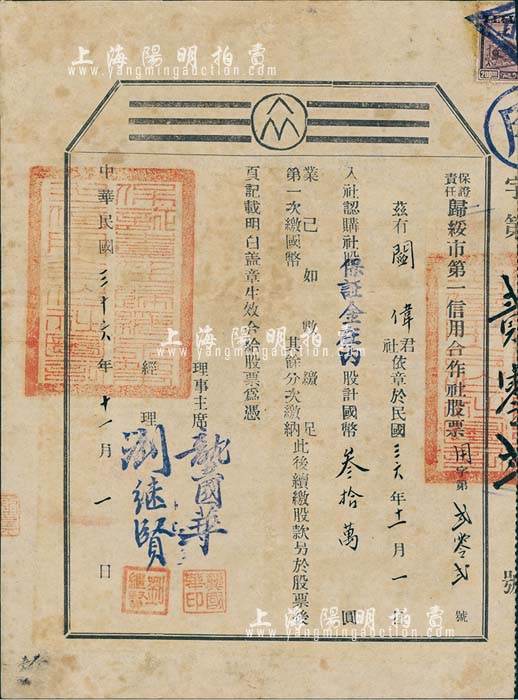 上海陽明拍賣
www.yangmingauction.com
200
字第
號
保證責任歸綏市第一信用合作社股票 用字第 弍零弍 號
茲有 閻偉 君社 依章於民國 三六 年 十一 月 一 日
入社認購社股保証金在內股計國幣 叁拾萬 圓
業已如數繳足
第一次繳國幣 其餘分次繳納
此後續繳股款另於股票後
頁記載明白蓋章生效合給股票為憑
理事主席 國華
經理 劉继賢
中華民國 三十六 年 十一 月 一 日
上海陽明拍賣
www.yangmingauction.com
上海陽明拍賣
www.yangmingauction.com